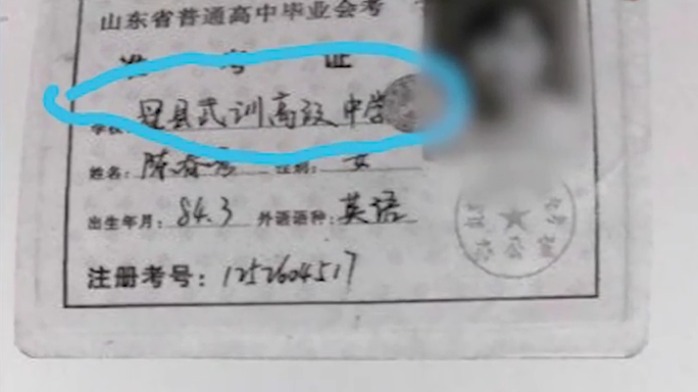 山东省普通高中毕业会考
准考证
学校:冠县武训高级中学
姓名:陈春秀 性别:女
出生年月:84.3 外语语种:英语
注册考号:1252604517